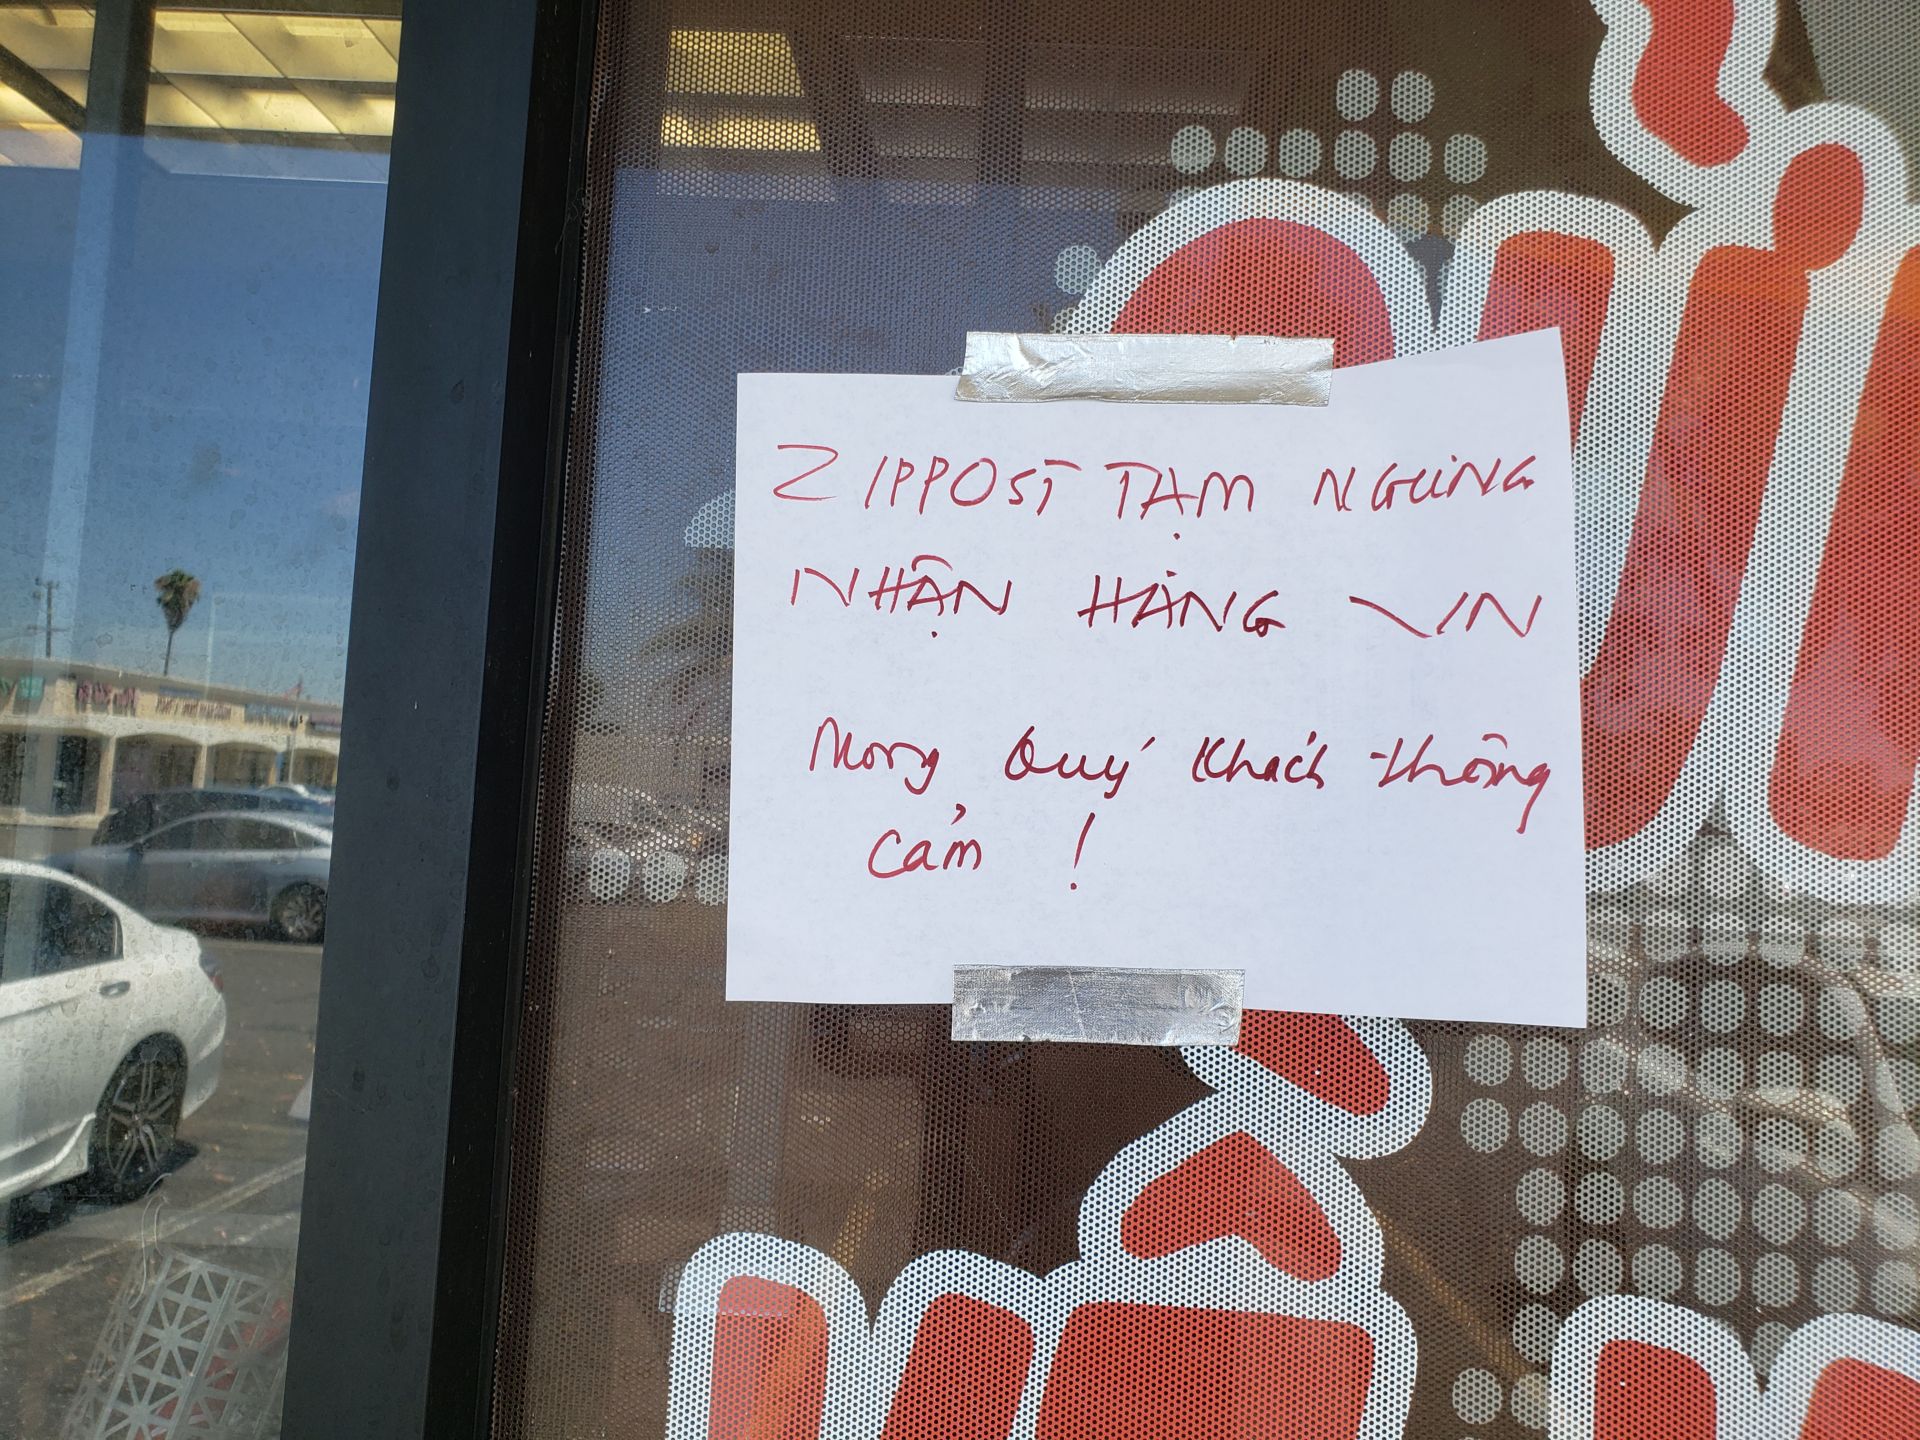 ZIPPOST TẠM NGỪNG
NHẬN HÀNG VN
Mong Quý Khách thông
cảm !